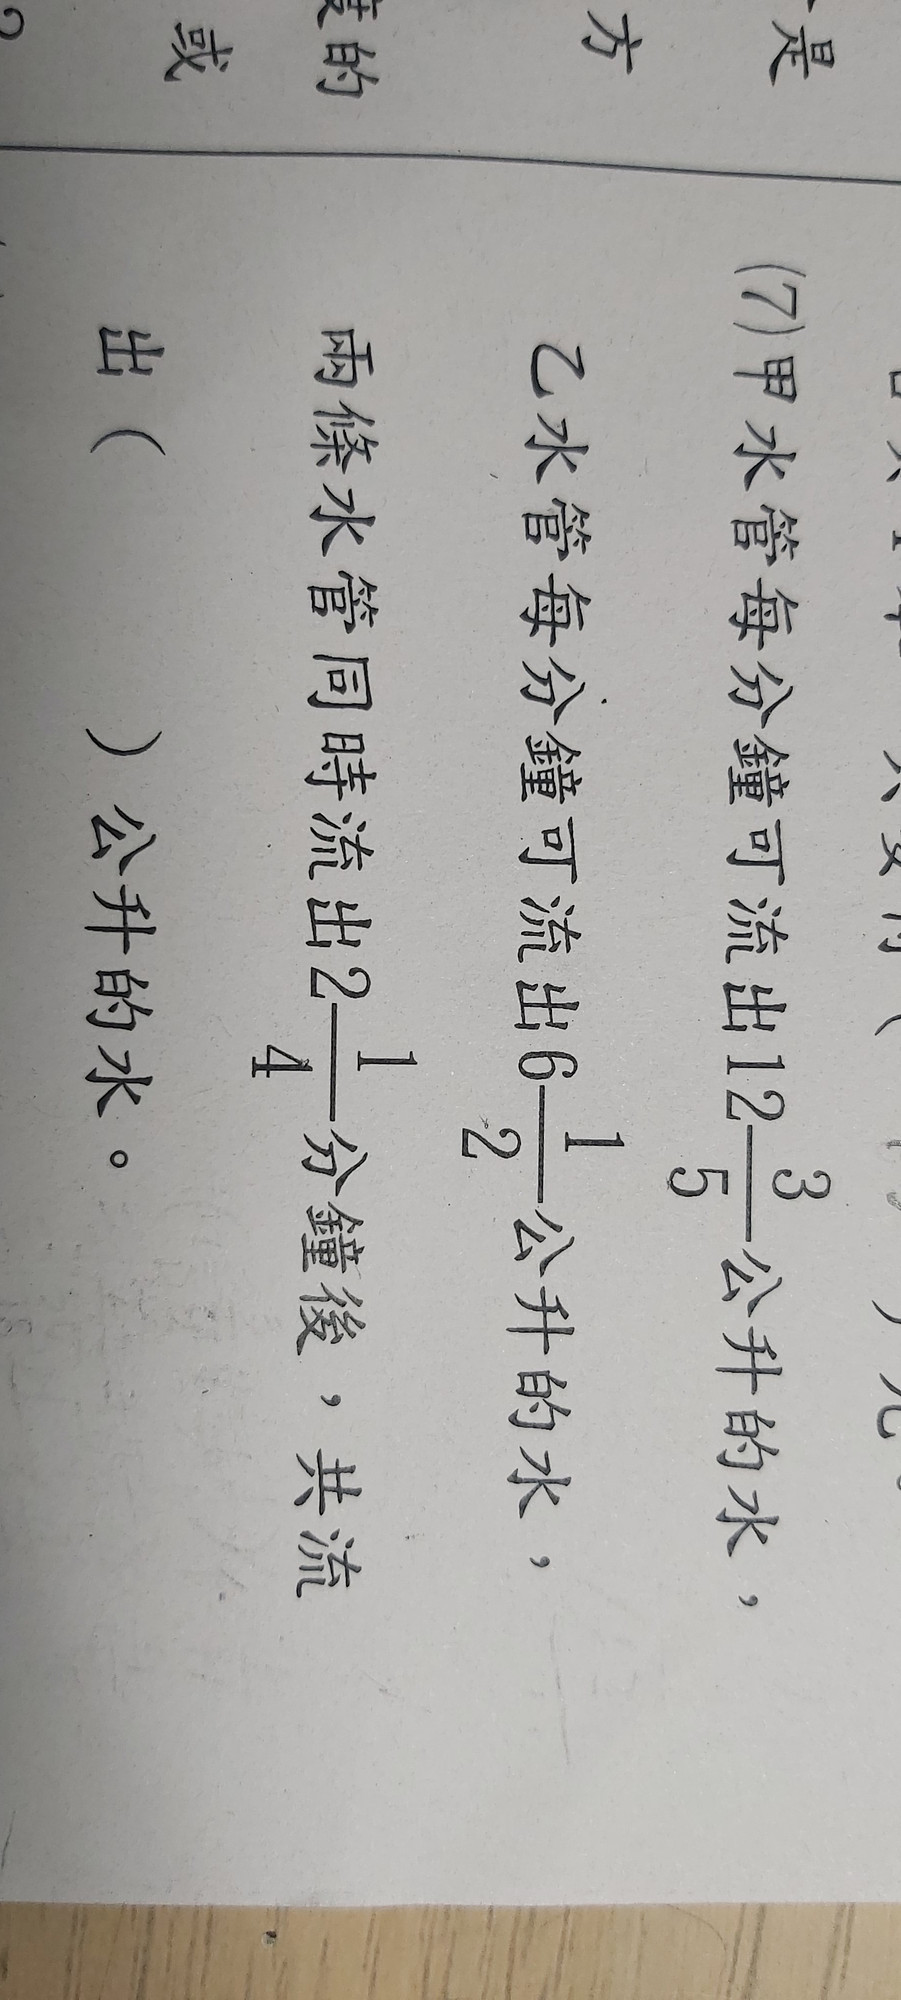 (7)甲水管每分鐘可流出12 3/5公升的水，
乙水管每分鐘可流出6 1/2公升的水，
兩條水管同時流出2 1/4分鐘後，共流
出（　　　）公升的水。
是
方
的
或